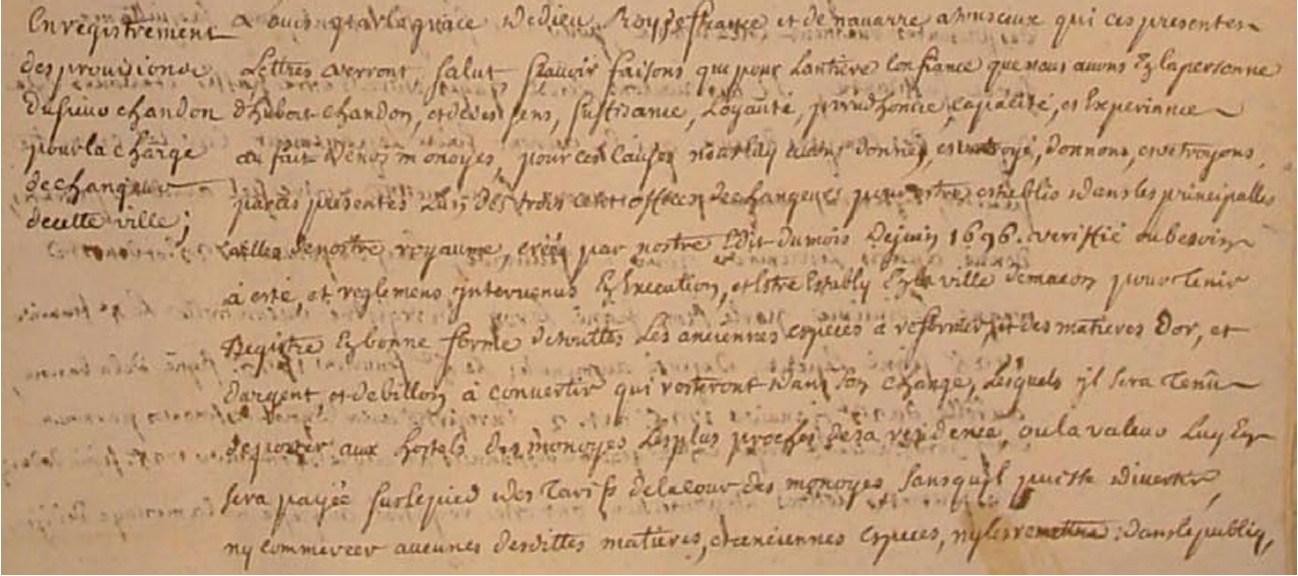 Enregistrement
des provisions
du sieur chandon
pour la charge
de changeur
de cette ville;
Louis par la grace de dieu Roy de france et de navarre a tous ceux qui ces presentes
Lettres verront salut scavoir faisons que pour Lantiere confiance que nous avons En la personne
d'hubert chandon, et de ses sens, suffisance, Loyauté, prudhomie, capacité, et Experiance
au fait de nos monoyes, pour ces causes nous luy avons donné, et octroyé, donnons, et octroyons,
par ces presentes Lun des trois cent offices de changeurs pour estre establis dans les principalles
villes de nostre royaume, créés par nostre Edit du mois De juin 1696. veriffié ou besoin
a esté, et reglemens intervenus En Execution, et Estre Estably En la ville de macon pour Tenir
Registre En bonne forme de touttes Les anciennes especes a reformer, et des matieres Dor, et
dargent et de billon à convertir qui resteront dans son change, Lesquels il sera Tenu
de porter aux hostels des monoyes Les plus proches de sa residence, ou la valeur Luy En
sera payée sur le pied des Tarifs de la cour des monoyes, sans quil puisse divertir,
ny commercer aucunes desdittes matieres, et anciennes especes, ny les remettre dans le public,